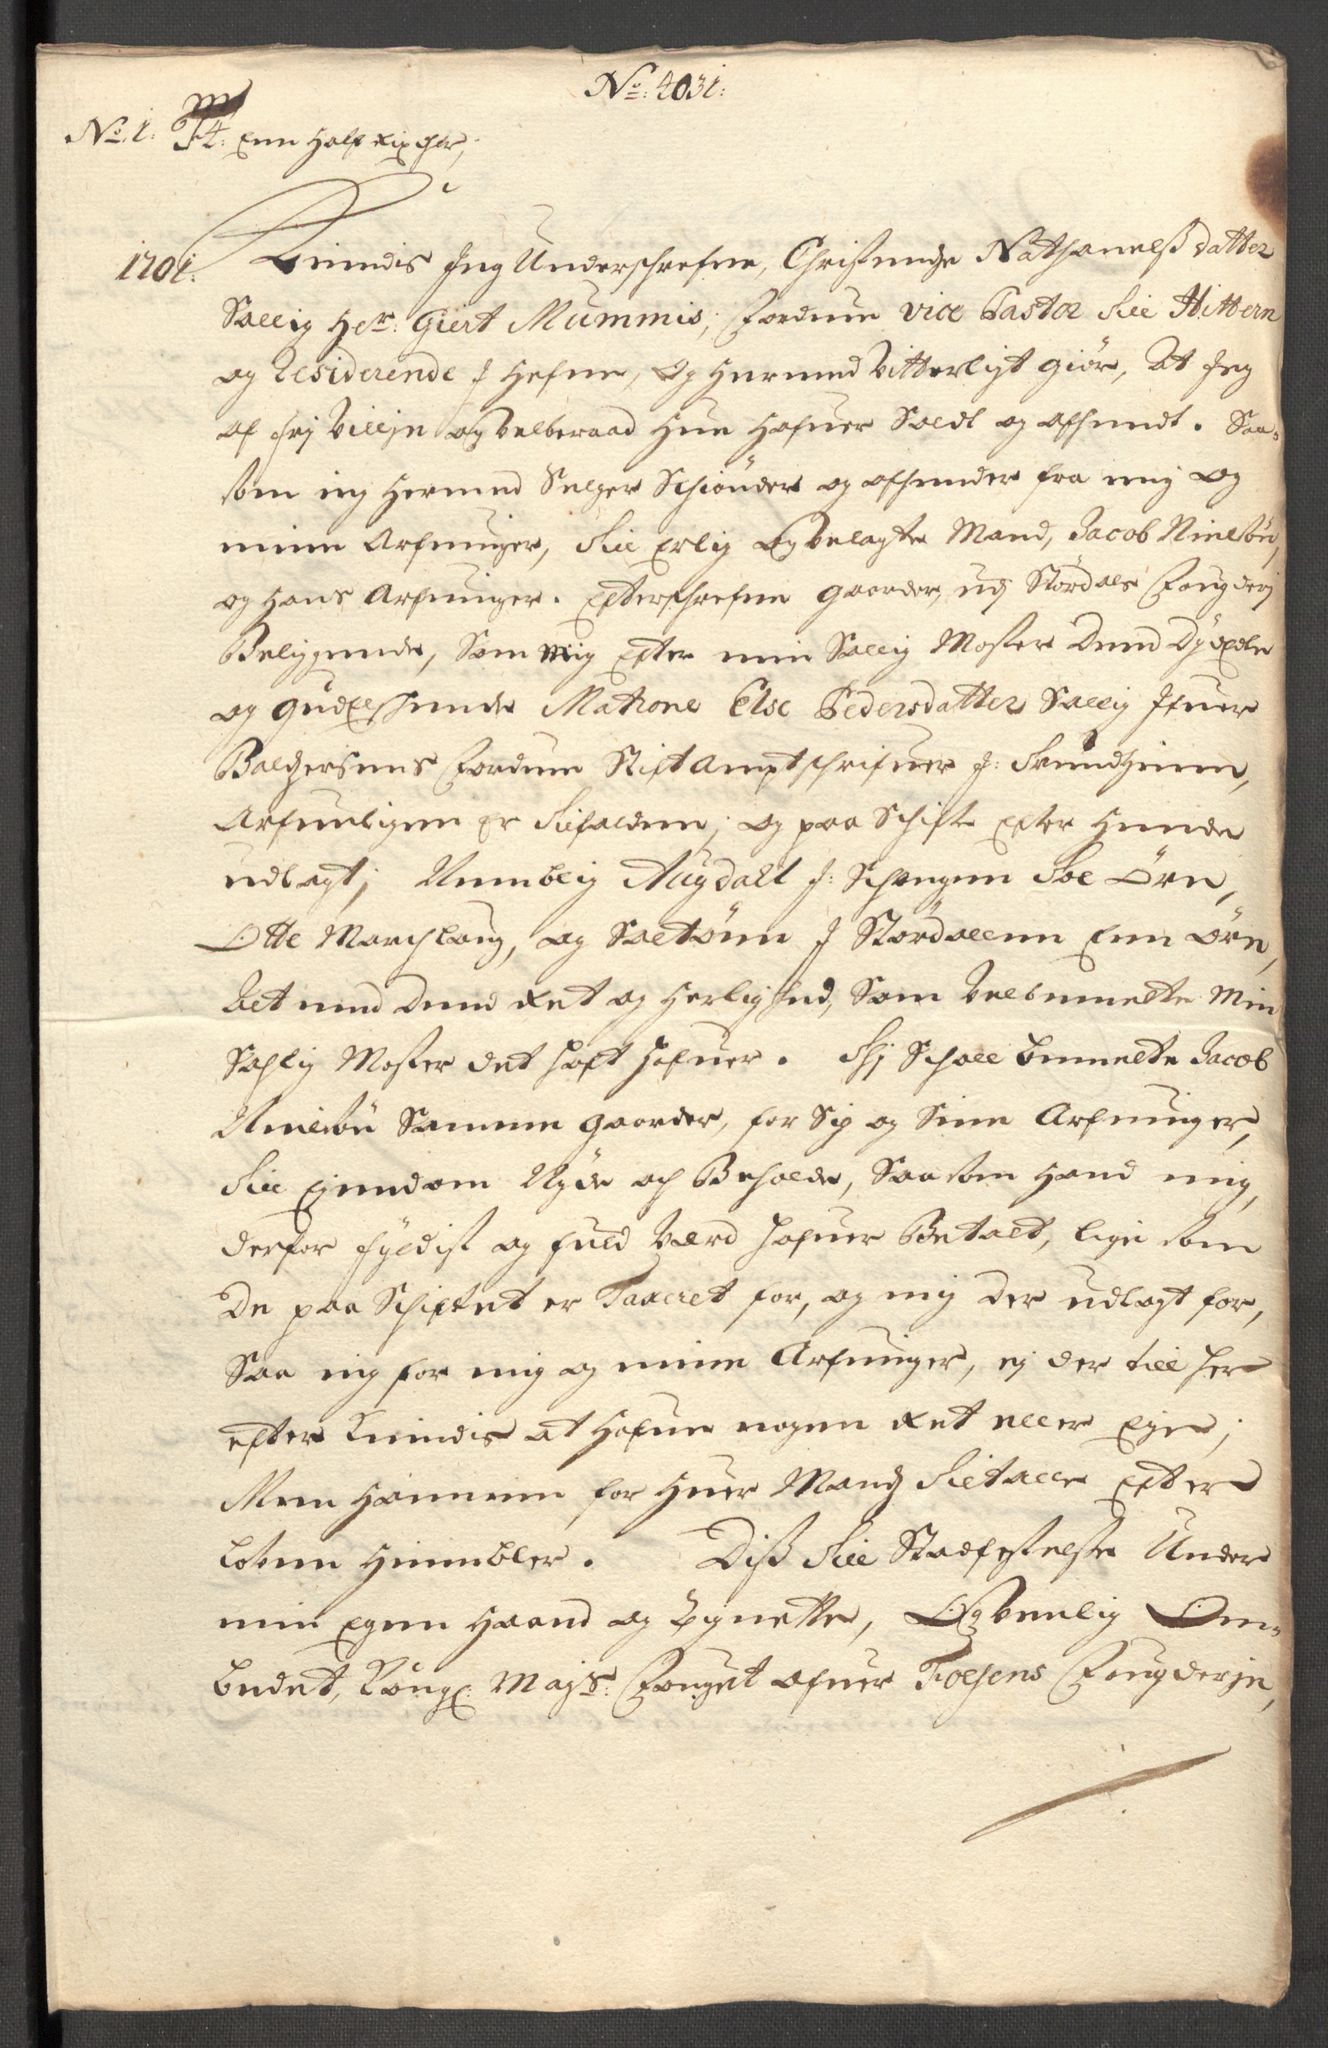 No: 4031:
No. 1. 24: Enn Half Rix dlr,
1701. Kiendis Jeg Underschrefne, Christendze Nathanelsß datter
Sallig Her: Giert Mummis, Fordum vice Pastor till Hittern
og Residerende J Hefne, Og Hermed Vitterligt giör, At Jeg
af frj Villje og Velberaad Hue Hafuer Soldt og afhendt. Saa-
som ieg Hermed Selger Schiöuder og afhender fra mig og
mine Arfuinger, till Erlig og Velagte Mand, Jacob Nielsön,
og Hans Arfuinger. Efterschrefne gaarder, udj Stördals Fougderj
Beliggende, Som mig Efter min Sallig Moster Dend Dydædle
og gudElschende Matrone Else Pedersdatter Sallig Jfuer
Baldzersens Fordum Stiftamptschrifuer J: Trundhiem,
Arfueligen er tilfalden; og paa Schifte Efter Hende
udlagt; Nemblig Augdall J: Schongen Toe Öre,
Otte Marchlaug, og Saltönn J Stördallenn Enn Öre,
Alt med Dend Ret og Herlighed, Som Velbemelte Min
Sahlig Moster det haft Hafuer. Thj Schall bemelte Jacob
Nielsön Samme gaarder, for Sig og Sine Arfuinger,
till Ejendom Nyde och Beholde, Saasom Hand mig,
derfor fyldist og fuld Værd hafuer Betalt, lige som
De paa Schiftet er Taxeret for, og mig der udlagt for,
Saa ieg for mig og mine Arfuinger, ej der till her
efter Kiendis at Hafue nogen Ret eller Eye;
Men Hannem for Huer Mandz tiltalle Efter
Loven Hiembler. Diß till Stadfestelße Under
min Egen Haand og Zignette, Og Venlig Om-
bedet, Kongl: Mayts: Fouget ofuer Foesens Fougderje,